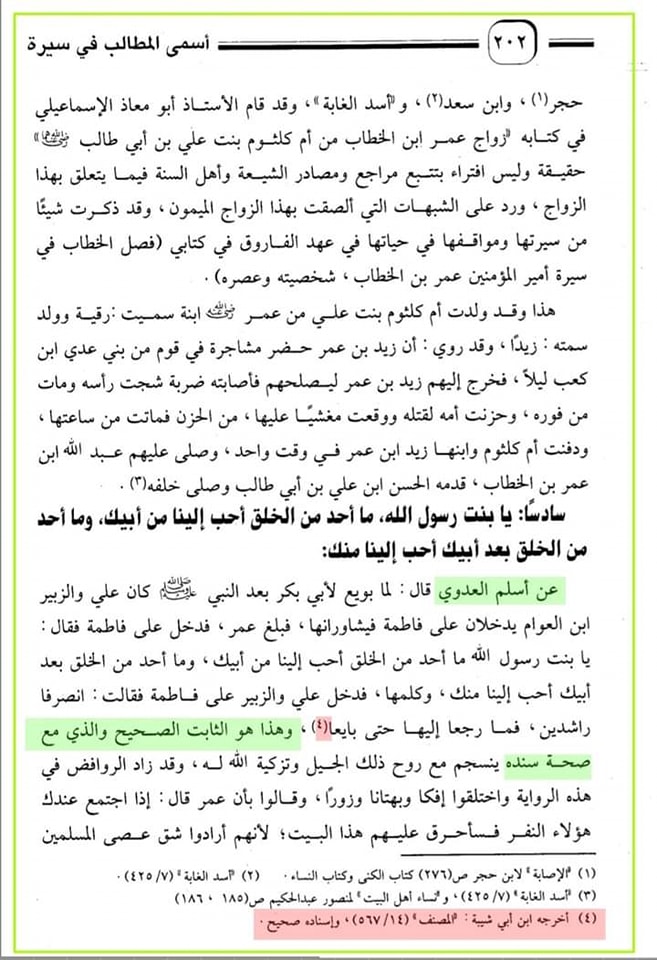 ٢٠٢ أسمى المطالب في سيرة
حجر(١) ، وابن سعد(٢) ، و«أسد الغابة» ، وقد قام الأستاذ أبو معاذ الإسماعيلي
في كتابه «زواج عمر ابن الخطاب من أم كلثوم بنت علي بن أبي طالب رضي الله عنهما»
حقيقة وليس افتراء بتتبع مراجع ومصادر الشيعة وأهل السنة فيما يتعلق بهذا
الزواج ، ورد على الشبهات التي ألصقت بهذا الزواج الميمون ، وقد ذكرت شيئًا
من سيرتها ومواقفها في حياتها في عهد الفاروق في كتابي (فصل الخطاب في
سيرة أمير المؤمنين عمر بن الخطاب ، شخصيته وعصره) .
هذا وقد ولدت أم كلثوم بنت علي من عمر رضي الله عنه ابنة سميت : رقية وولد
سمته : زيدًا ، وقد روي : أن زيد بن عمر حضر مشاجرة في قوم من بني عدي ابن
كعب ليلاً ، فخرج إليهم زيد بن عمر ليصلحهم فأصابته ضربة شجت رأسه ومات
من فوره ، وحزنت أمه لقتله ووقعت مغشيًا عليها ، من الحزن فماتت من ساعتها ،
ودفنت أم كلثوم وابنها زيد ابن عمر في وقت واحد ، وصلى عليهم عبد الله ابن
عمر بن الخطاب ، قدمه الحسن ابن علي بن أبي طالب وصلى خلفه(٣) .
سادسًا: يا بنت رسول الله، ما أحد من الخلق أحب إلينا من أبيك، وما أحد
من الخلق بعد أبيك أحب إلينا منك:
عن أسلم العدوي قال : لما بويع لأبي بكر بعد النبي ﷺ كان علي والزبير
ابن العوام يدخلان على فاطمة فيشاورانها ، فبلغ عمر ، فدخل على فاطمة فقال :
يا بنت رسول الله ما أحد من الخلق أحب إلينا من أبيك ، وما أحد من الخلق بعد
أبيك أحب إلينا منك ، وكلمها ، فدخل علي والزبير على فاطمة فقالت : انصرفا
راشدين ، فما رجعا إليها حتى بايعا(٤) ، وهذا هو الثابت الصحيح والذي مع
صحة سنده ينسجم مع روح ذلك الجيل وتزكية الله له ، وقد زاد الروافض في
هذه الرواية واختلقوا إفكا وبهتانا وزورًا ، وقالوا بأن عمر قال : إذا اجتمع عندك
هؤلاء النفر فسأحرق عليهم هذا البيت ؛ لأنهم أرادوا شق عصى المسلمين
(١) «الإصابة» لابن حجر ص(٢٧٦) كتاب الكنى وكتاب النساء . (٢) «أسد الغابة» (٤٢٥/٧) .
(٣) «أسد الغابة» (٤٢٥/٧) ، و«نساء أهل البيت» لمنصور عبدالحكيم ص(١٨٥ ، ١٨٦)
(٤) أخرجه ابن أبي شيبة : «المصنف» (٥٦٧/١٤) ، وإسناده صحيح .